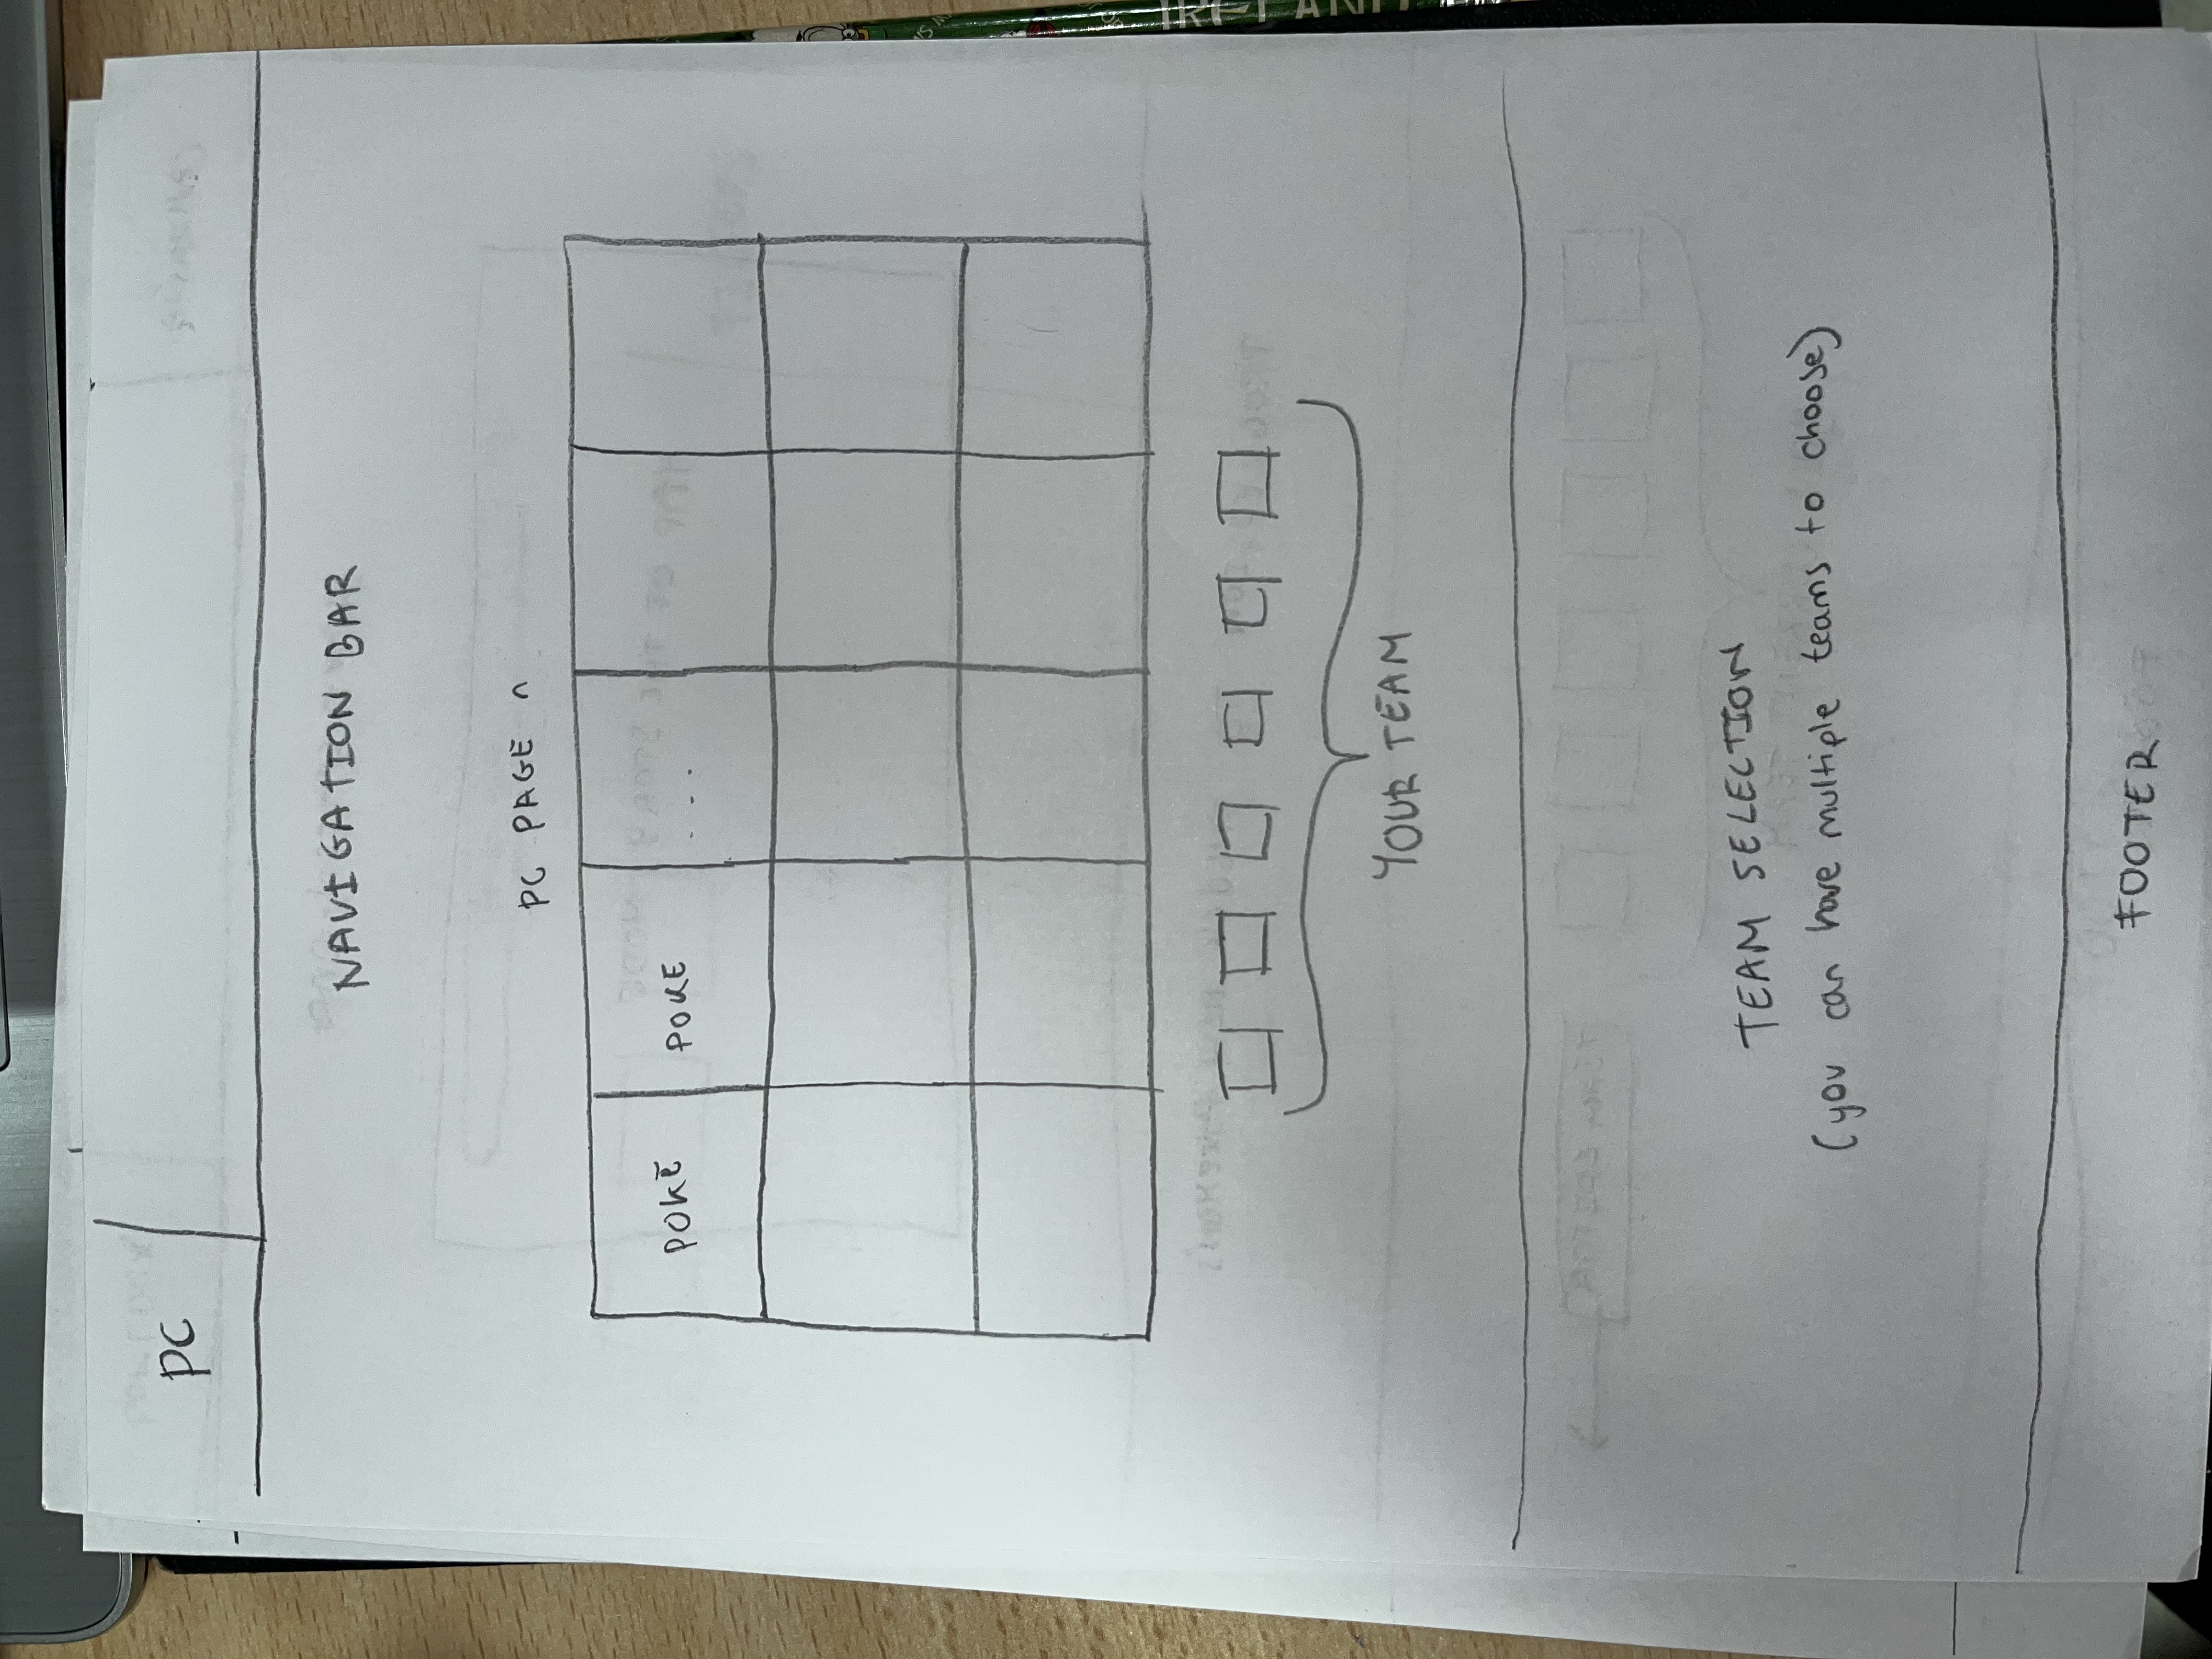 PC
NAVIGATION BAR
PC PAGE n
POKE POKE ...
YOUR TEAM
TEAM SELECTION
(you can have multiple teams to choose)
FOOTER